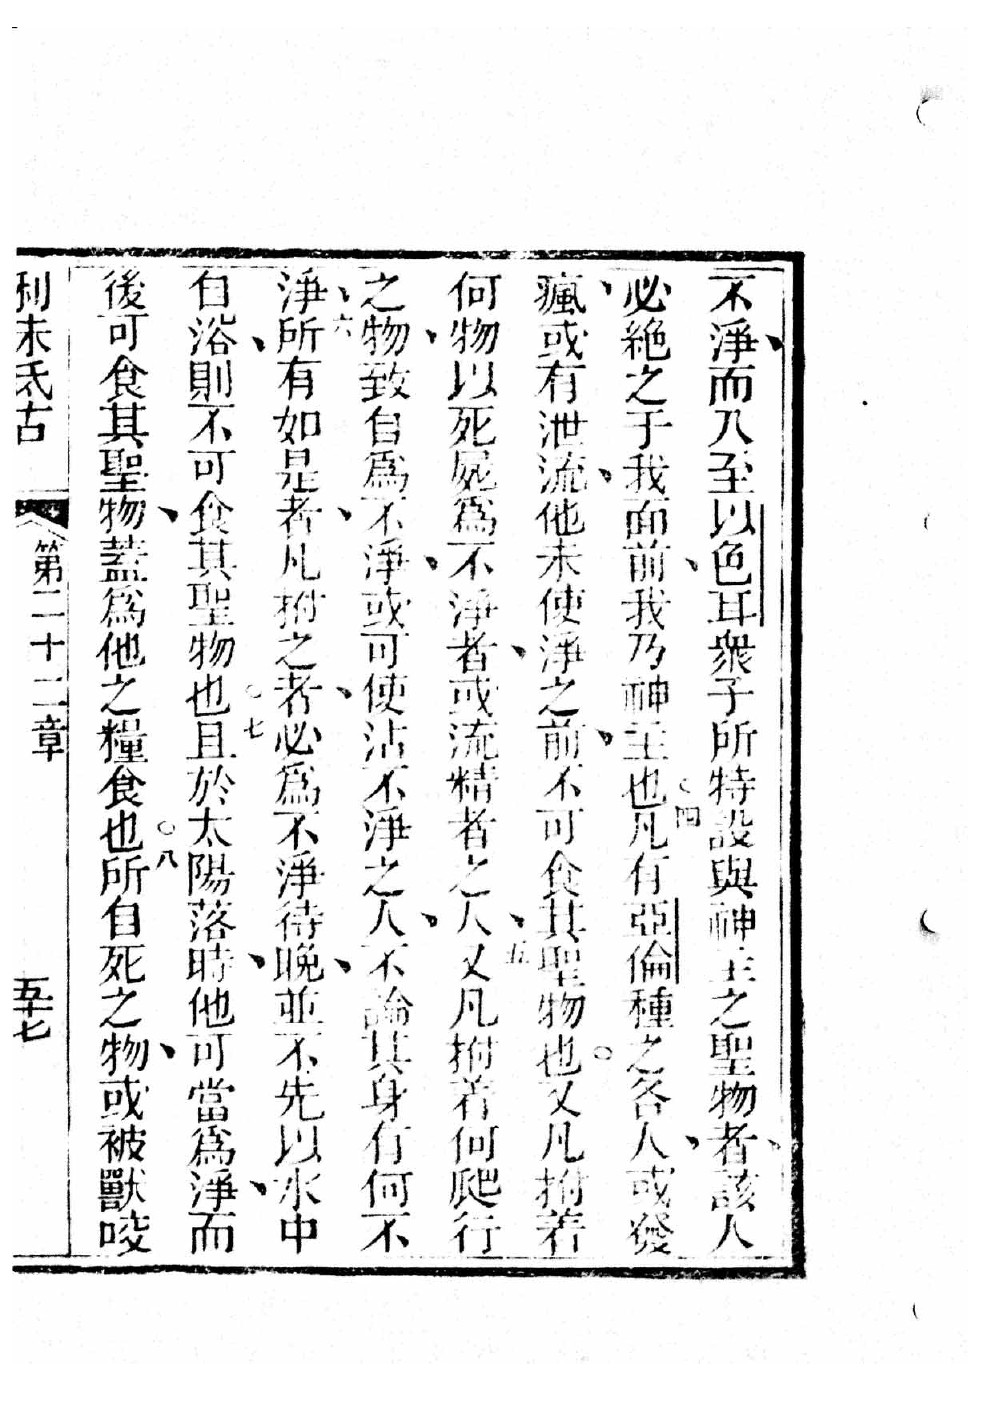 不淨而乃至以色耳衆子所特設與神主之聖物者該人
必絶之于我面前我乃神主也○四凡有亞倫種之各人或發
瘋或有泄流他未使淨之前不可食其聖物也○五又凡拊着
何物以死屍爲不淨者或流精者之人又凡拊着何爬行
之物致自爲不淨或可使沾不淨之人不論其身有何不
淨六所有如是者凡拊之者必爲不淨待晚並不先以水中
自浴則不可食其聖物也○七且於太陽落時他可當爲淨而
後可食其聖物蓋爲他之糧食也○八所自死之物或被獸咬
利未氐古 第二十二章 五十七